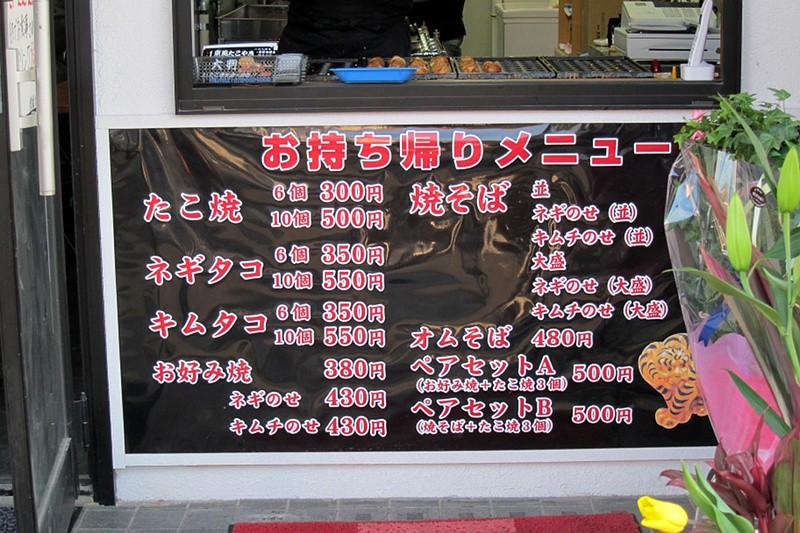 お持ち帰りメニュー
たこ焼 6個 300円
10個 500円
ネギタコ 6個 350円
10個 550円
キムタコ 6個 350円
10個 550円
お好み焼 380円
ネギのせ 430円
キムチのせ 430円
焼そば 並
ネギのせ (並)
キムチのせ (並)
大盛
ネギのせ (大盛)
キムチのせ (大盛)
オムそば 480円
ペアセットA 500円
(お好み焼+たこ焼3個)
ペアセットB 500円
(焼そば+たこ焼3個)